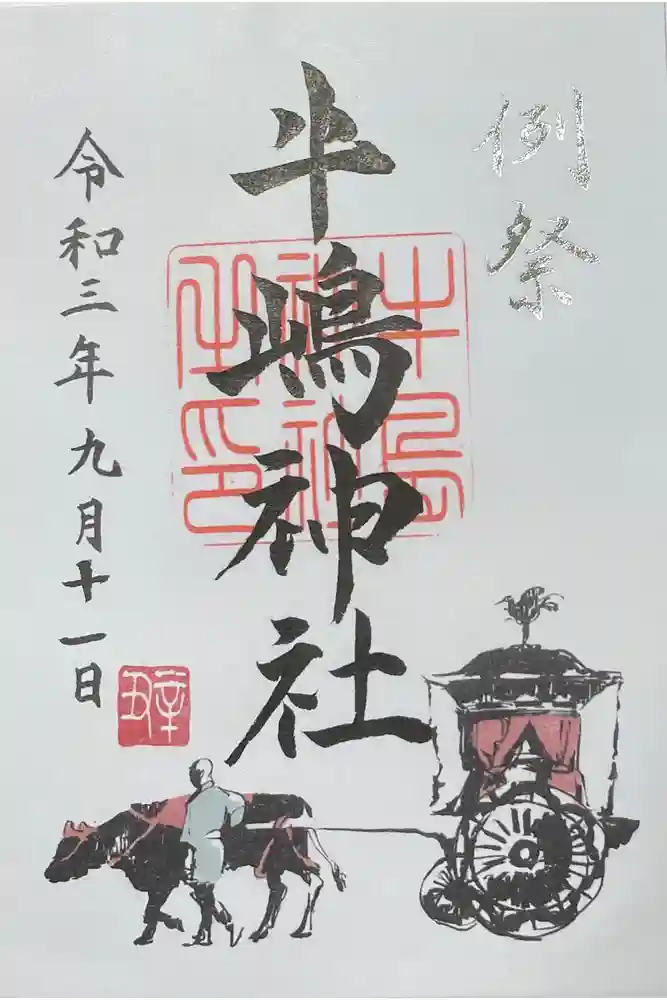 例祭
牛嶋神社
牛島
神社
之印
令和三年九月十一日
辛丑